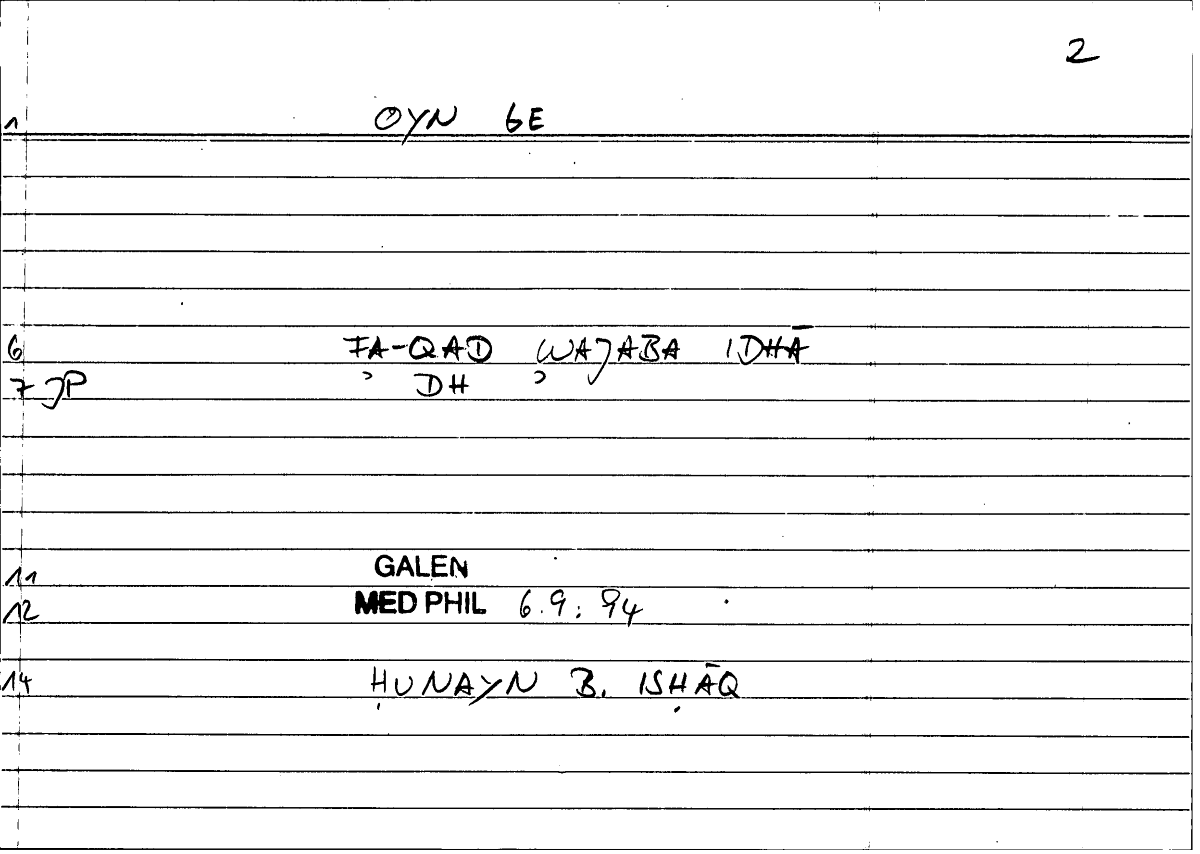 2
1 OYN GE
6 FA-QAD WAJABA IDHĀ
7 JP ʾ DH ʾ
11 GALEN
12 MED PHIL 6.9 : 94
14 ḤUNAYN B. ISḤĀQ